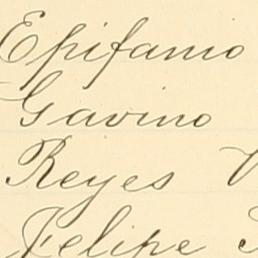 Epifanio
Gavino
Reyes
Felipe